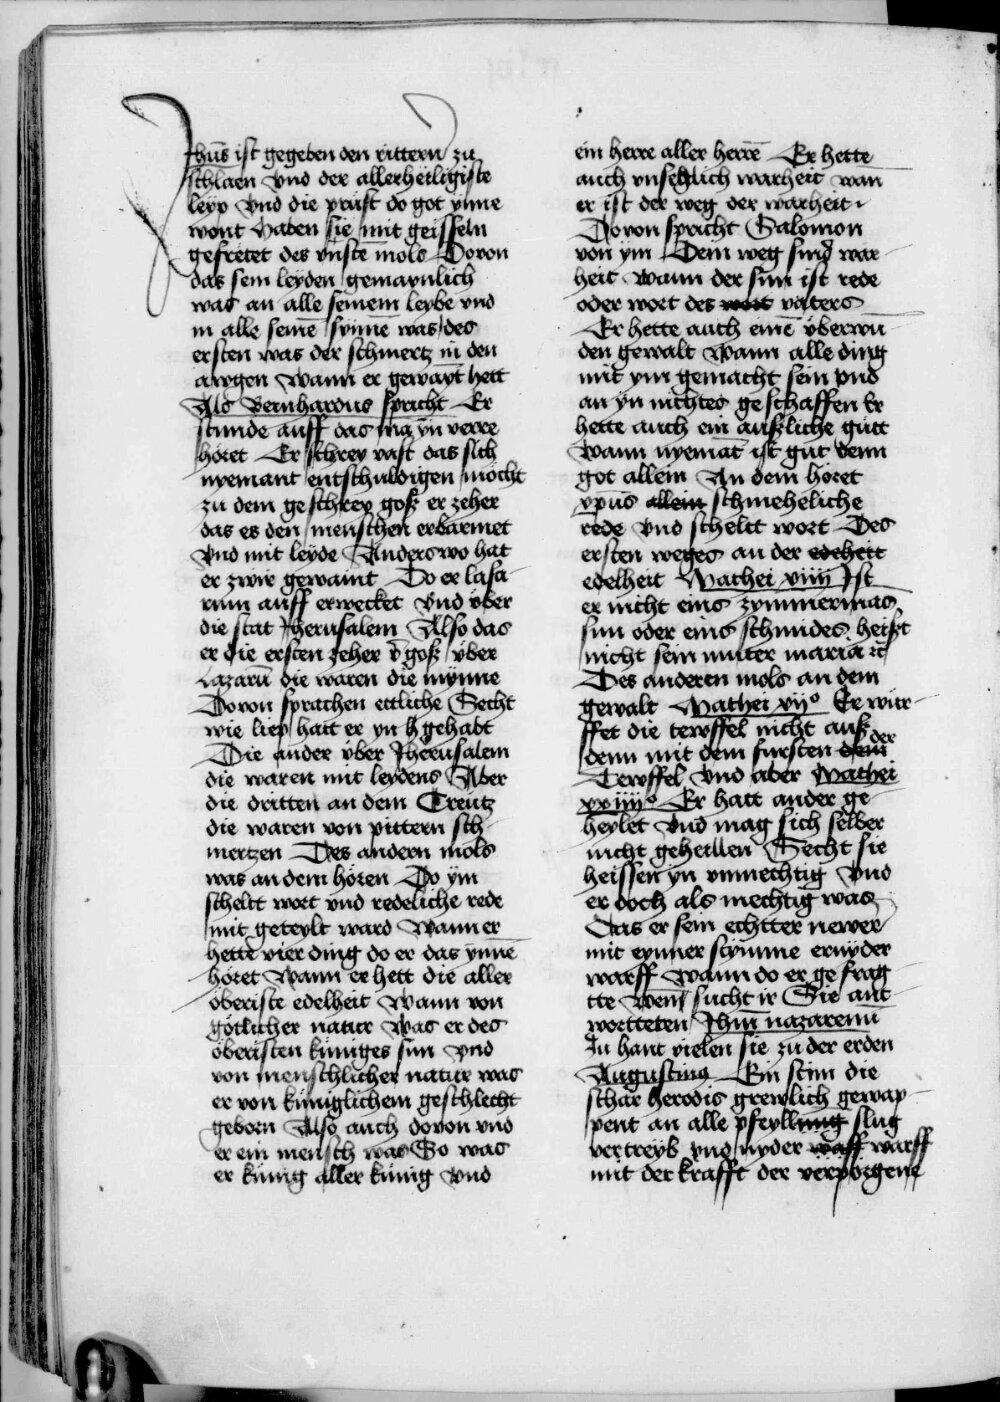 Jhūs ist gegeben den rittern zu
schlaen vnd der allerheiligiste
leyp vnd die prust do got ynne
wont haben sie mit geisseln
gefretet des vnstē mols Dovon
das sein leyden gemaynlich
was an alle seinem leybe vnd
in alle seinē synnē was des
ersten was der schmertz in den
awgen wann er gewaynt hett
Als Bernhardus spricht Er
stunde auff das mā yn verre
höret Er schrey vast das sich
nyemant entschuldigen mocht
zu dem geschrey goß er zeher
das es den menschen erbarmet
vnd mit leyde Anderswo hat
er zwir gewaint Do er lasa
rum auff erwecket vnd vber
die stat Jherusalem Also das
er die ersten zeher v̄goß vber
Lazarū die waren die mynne
Dovon sprachen ettliche Secht
wie liep hatt er yn h gehabt
Die ander vber Jherusalem
die waren mit leydens Aber
die dritten an dem Creutz
die waren von pittern sch
mertzen Des andern mols
was an dem hören Do ym
scheltt wort vnd redeliche rede
mit geteylt ward wann er
hette vier ding do er das ynnē
höret wann er hett die aller
öberiste edelheit wann von
götlicher natur was er des
öberisten küniges sun vnd
von menschlicher natur was
er von küniglichem geschlecht
geborn Also auch dovon vnd
er ein mensch was So was
er künig aller künig vnd
ein herre aller herrē Er hette
auch vnseglich warheit wan̄
er ist der weg der warheit
Dovon spricht Salomon
von ym Dein weg sind war
heit wann der sun ist rede
oder wort des wort vaters
Er hette auch einē vberwū
den gewalt wann alle ding
mit ym gemacht sein vnd
an yn nichtes geschaffen Er
hette auch ein außliche gutt
wann nyemāt ist gut denn
got allein An dem höret
xpūs allein schmeheliche
rede vnd scheltt wort Des
ersten weges an der edeheit
edelheit Mathei xiiij Ist
er nicht eins zymmermās
sun oder eins schmides heißt
nicht sein muter maria rc̄
Des anderen mols an dem
gewalt Mathei xijº Er wür
ffet die tewffel nicht auß
denn mit dem fursten dem der
Tewffel vnd aber Mathei
xxiiijº Er hatt ander ge
heylet vnd mag sich selber
nicht geheillen Secht sie
heissen yn vnmechtig vnd
er doch als mechtig was
Das er sein echtter newer
mit eynner stymme ernyder
warff wann do er gefrag
tte wen sucht ir Sie ant
wortteten Jhm̄ nazarenū
Zu hant vielen sie zu der erden
Augustinus Ein stim die
schar herodis grewlich gewap
pent an alle pfeyllung slug
vertreyb vnd nyder waff warff
mit der krafft der verporgene